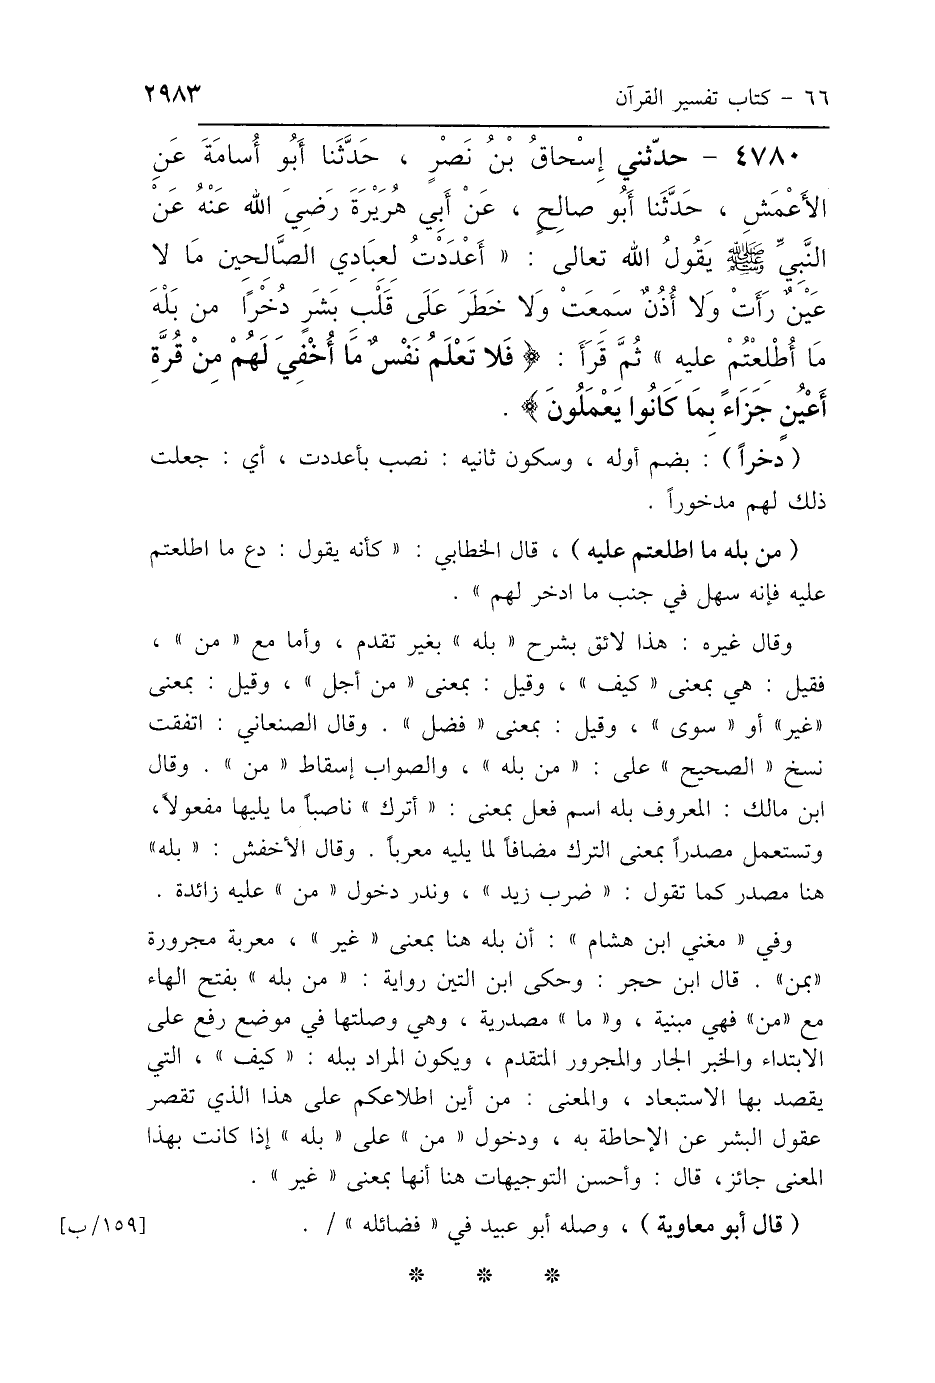 ٦٦ - كتاب تفسير القرآن ٢٩٨٣
٤٧٨٠ - حدّثني إسْحاقُ بْنُ نَصْرٍ ، حَدَّثَنا أَبُو أُسامَةَ عَنِ
الأَعْمَشِ ، حَدَّثَنا أَبُو صالِحٍ ، عَنْ أَبِي هُرَيْرَةَ رَضِيَ الله عَنْهُ عَنْ
النَّبِيِّ ﷺ يَقُولُ الله تعالى : « أَعْدَدْتُ لعِبَادِي الصَّالِحين مَا لا
عَيْنٌ رَأَتْ وَلا أُذُنٌ سَمِعَتْ وَلا خَطَرَ عَلَى قَلْبِ بَشَرٍ دُخْرًا من بَلْهَ
مَا أُطْلِعْتُمْ عليه » ثُمَّ قَرَأَ : ﴿ فَلا تَعْلَمُ نَفْسٌ مَا أُخْفِيَ لَهُمْ مِنْ قُرَّةِ
أَعْيُنٍ جَزَاءً بِمَا كَانُوا يَعْمَلُونَ ﴾ .
( دخراً ) : بضم أوله ، وسكون ثانيه : نصب بأعددت ، أي : جعلت
ذلك لهم مدخوراً .
( من بله ما اطلعتم عليه ) ، قال الخطابي : « كأنه يقول : دع ما اطلعتم
عليه فإنه سهل في جنب ما ادخر لهم » .
وقال غيره : هذا لائق بشرح « بله » بغير تقدم ، وأما مع « من » ،
فقيل : هي بمعنى « كيف » ، وقيل : بمعنى « من أجل » ، وقيل : بمعنى
«غير» أو « سوى » ، وقيل : بمعنى « فضل » . وقال الصنعاني : اتفقت
نسخ « الصحيح » على : « من بله » ، والصواب إسقاط « من » . وقال
ابن مالك : المعروف بله اسم فعل بمعنى : « أترك » ناصباً ما يليها مفعولاً،
وتستعمل مصدراً بمعنى الترك مضافاً لما يليه معرباً . وقال الأخفش : « بله»
هنا مصدر كما تقول : « ضرب زيد » ، وندر دخول « من » عليه زائدة .
وفي « مغني ابن هشام » : أن بله هنا بمعنى « غير » ، معربة مجرورة
«بمن» . قال ابن حجر : وحكى ابن التين رواية : « من بله » بفتح الهاء
مع «من» فهي مبنية ، و« ما » مصدرية ، وهي وصلتها في موضع رفع على
الابتداء والخبر الجار والمجرور المتقدم ، ويكون المراد ببله : « كيف » ، التي
يقصد بها الاستبعاد ، والمعنى : من أين اطلاعكم على هذا الذي تقصر
عقول البشر عن الإحاطة به ، ودخول « من » على « بله » إذا كانت بهذا
المعنى جائز، قال : وأحسن التوجيهات هنا أنها بمعنى « غير » .
( قال أبو معاوية ) ، وصله أبو عبيد في « فضائله » / . [١٥٩/ب]
* * *